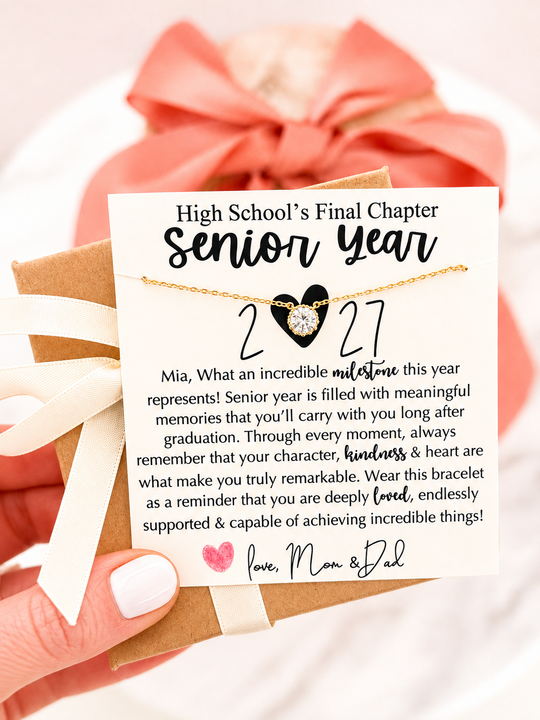 High School's Final Chapter
Senior Year
2 27
Mia, What an incredible milestone this year
represents! Senior year is filled with meaningful
memories that you'll carry with you long after
graduation. Through every moment, always
remember that your character, kindness & heart are
what make you truly remarkable. Wear this bracelet
as a reminder that you are deeply loved, endlessly
supported & capable of achieving incredible things!
love, Mom & Dad